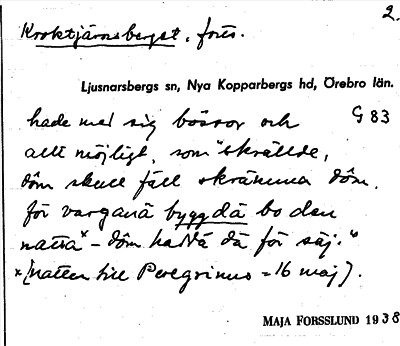 2.
Kroktjärnsberget, forts.
Ljusnarsbergs sn, Nya Kopparbergs hd, Örebro län.
hade med sig bössor och G 83
allt möjligt, som "skrällde,
dôm skull fäll skrämma dôm.
för varganä byggdä bo den
natta" x – dôm haddä dä för säj."
x (natten till Peregrinus = 16 maj).
MAJA FORSSLUND 1938